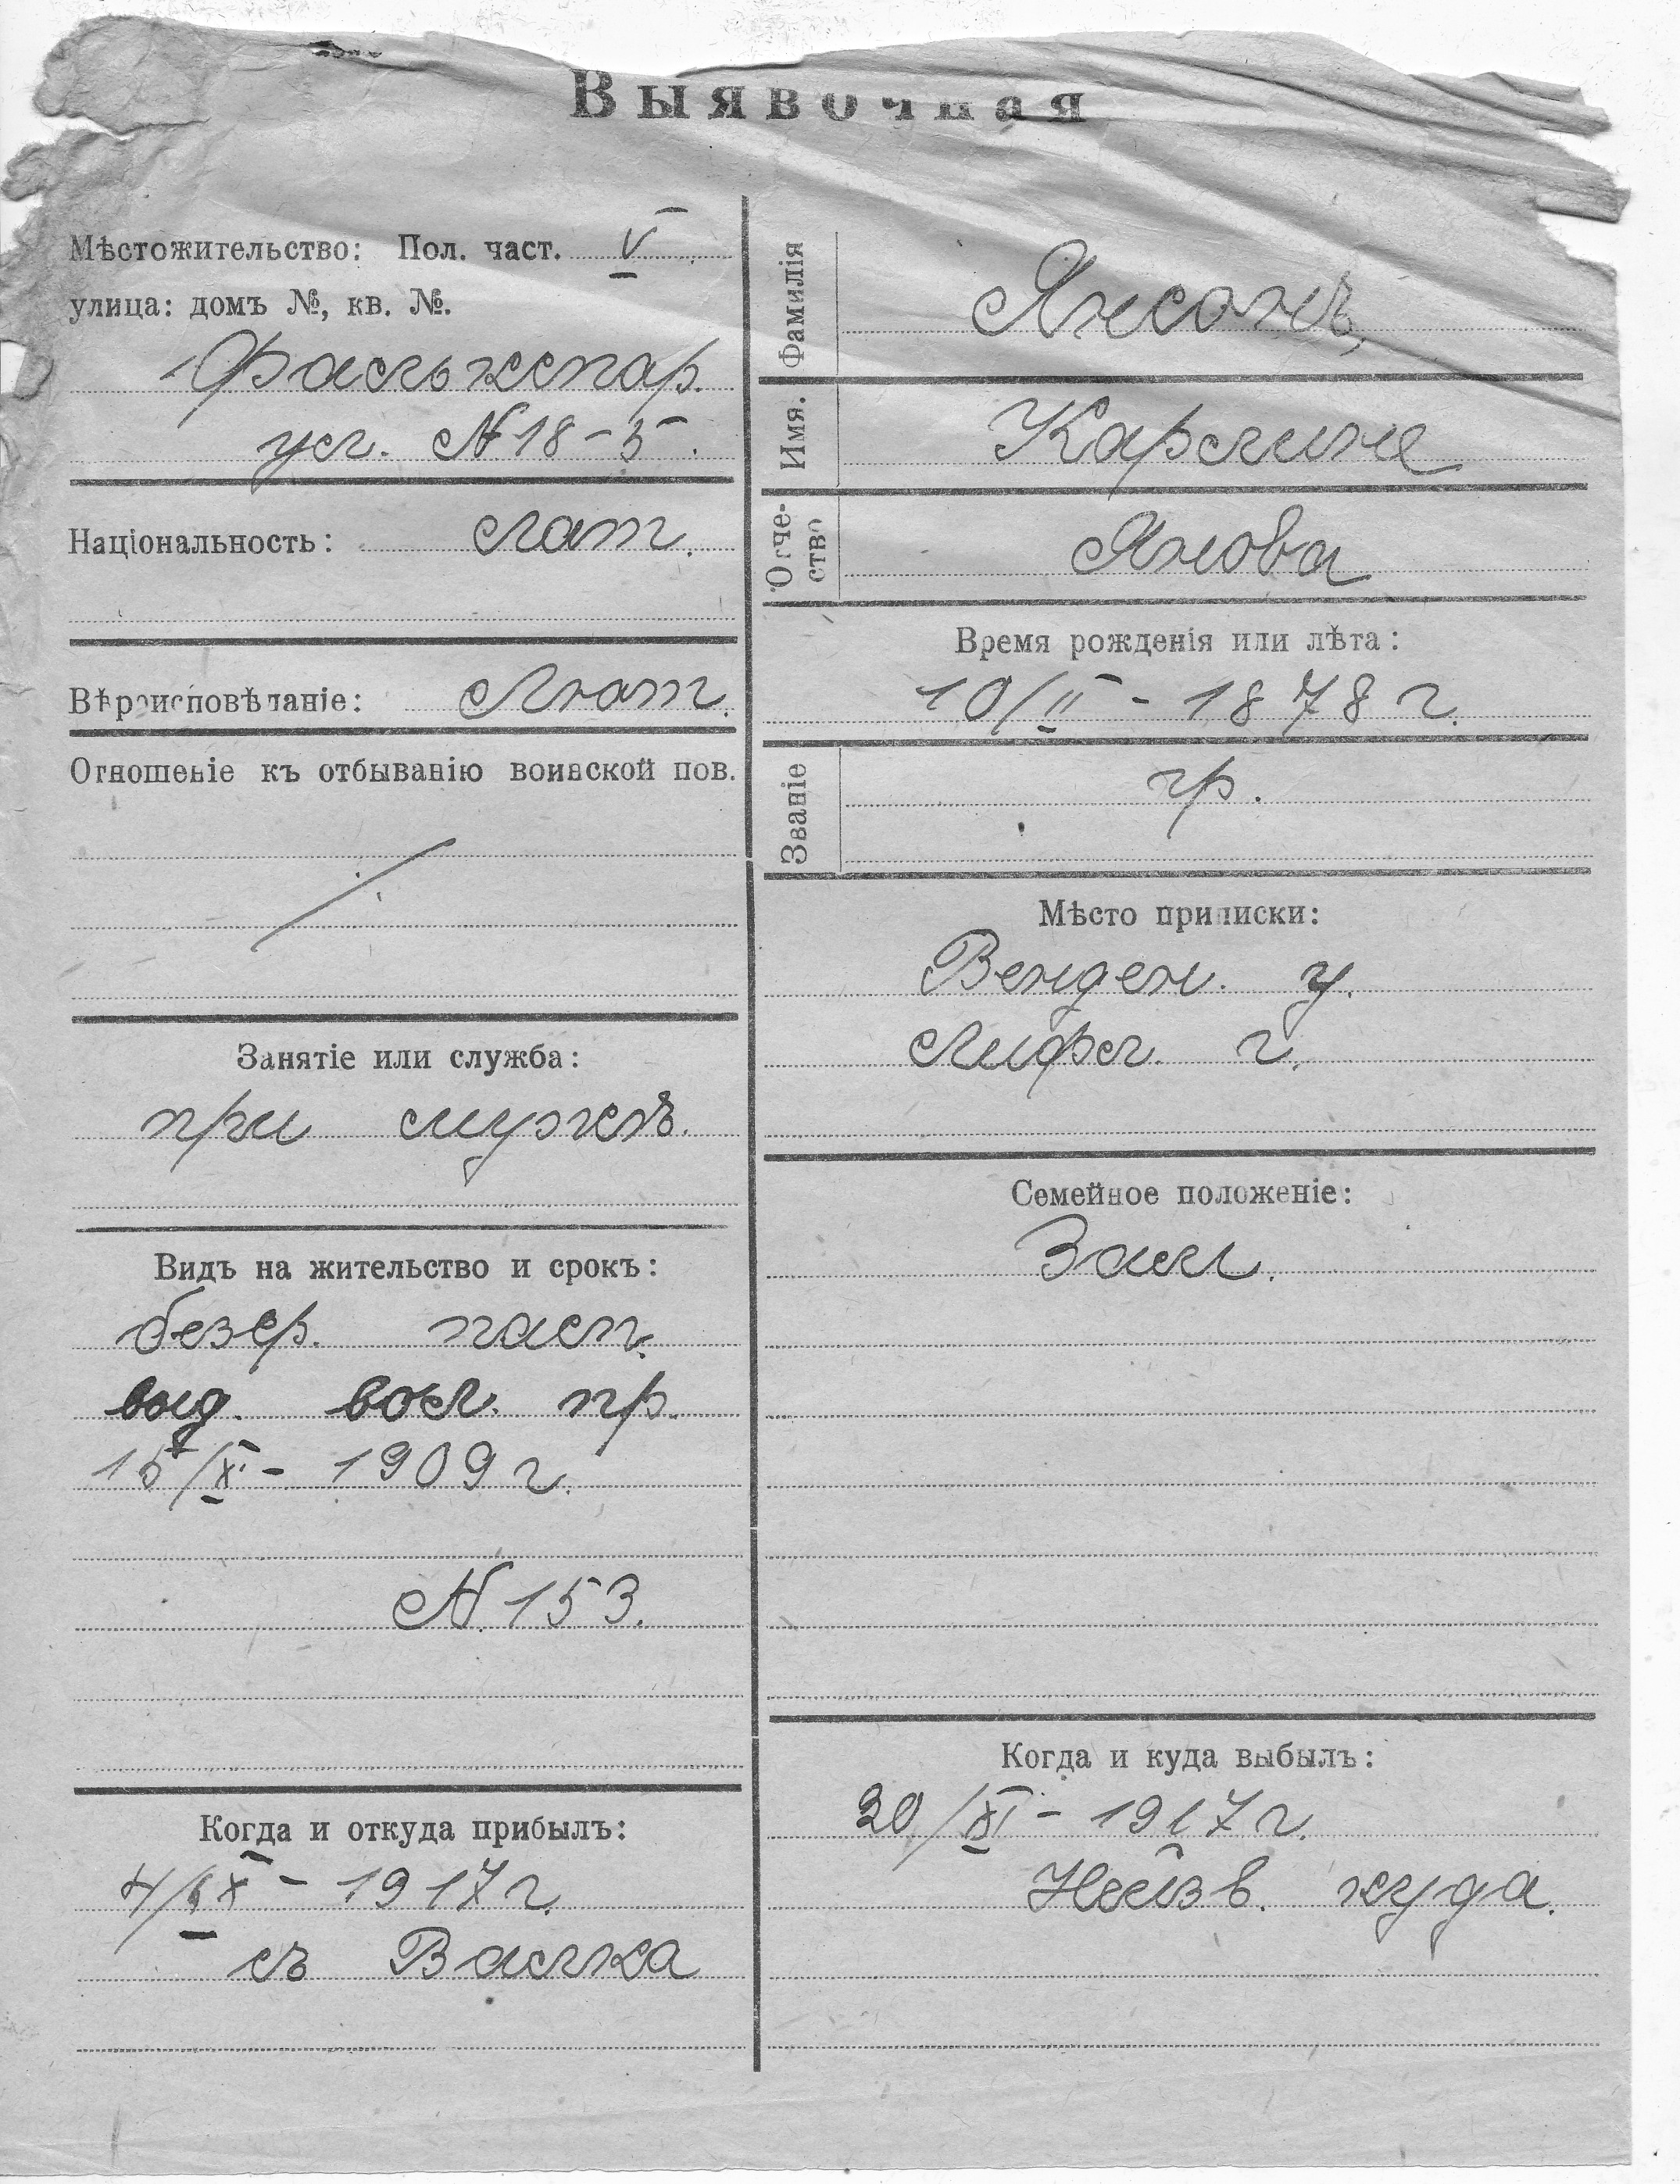 Выявочная
Мѣстожительство: Пол. част. V
улица: домъ №, кв. №.
Фалькспар.
ул. № 18-5.
Національность: лат.
Вѣроисповѣданіе: Лют.
Отношеніе къ отбыванію воинской пов.
Занятіе или служба:
при мужѣ.
Видъ на жительство и срокъ:
безср. пасп.
выд. вол. пр.
15/XI - 1909 г.
№ 153.
Когда и откуда прибылъ:
4/IX - 1917 г.
съ Валка
Фамилія Янсонъ
Имя. Карлине
Отчество Янова
Время рожденія или лѣта:
10/II - 1878 г.
Званіе гр.
Мѣсто приписки:
Венден. у.
Лифл. г.
Семейное положеніе:
Зам.
Когда и куда выбылъ:
20/XI - 1917 г.
Неизв. куда.